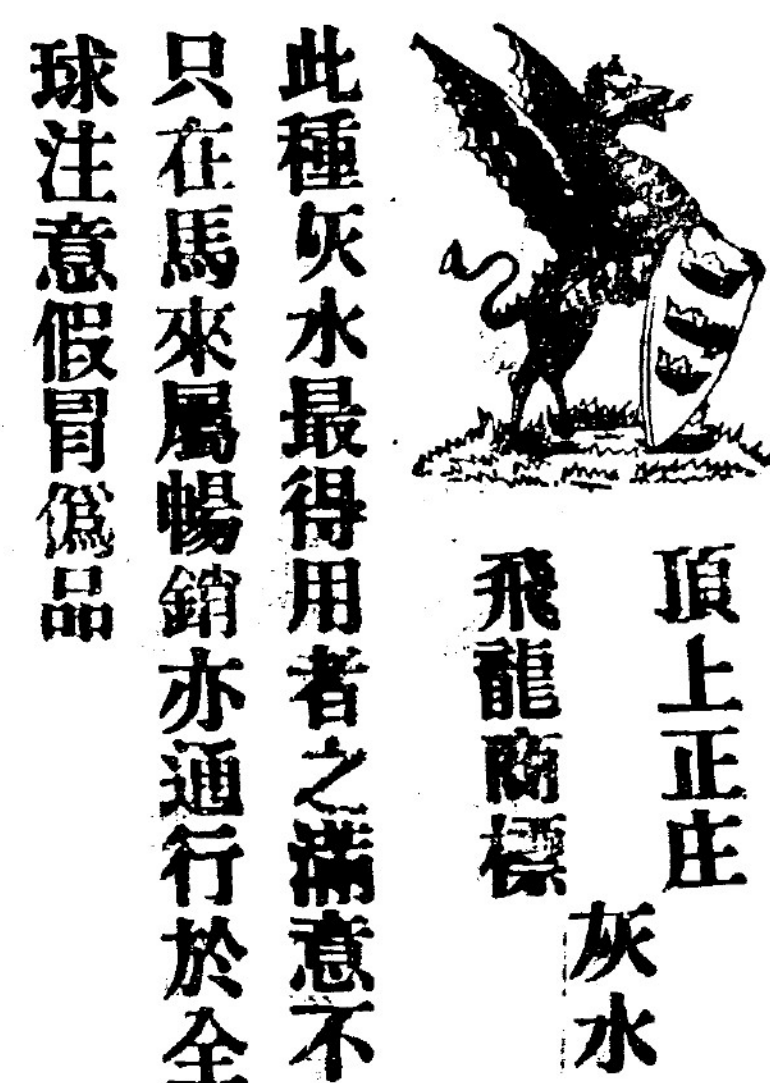 頂上正庄
飛龍商標
灰水
此種灰水最得用者之滿意不
只在馬來屬暢銷亦通行於全
球注意假冒偽品